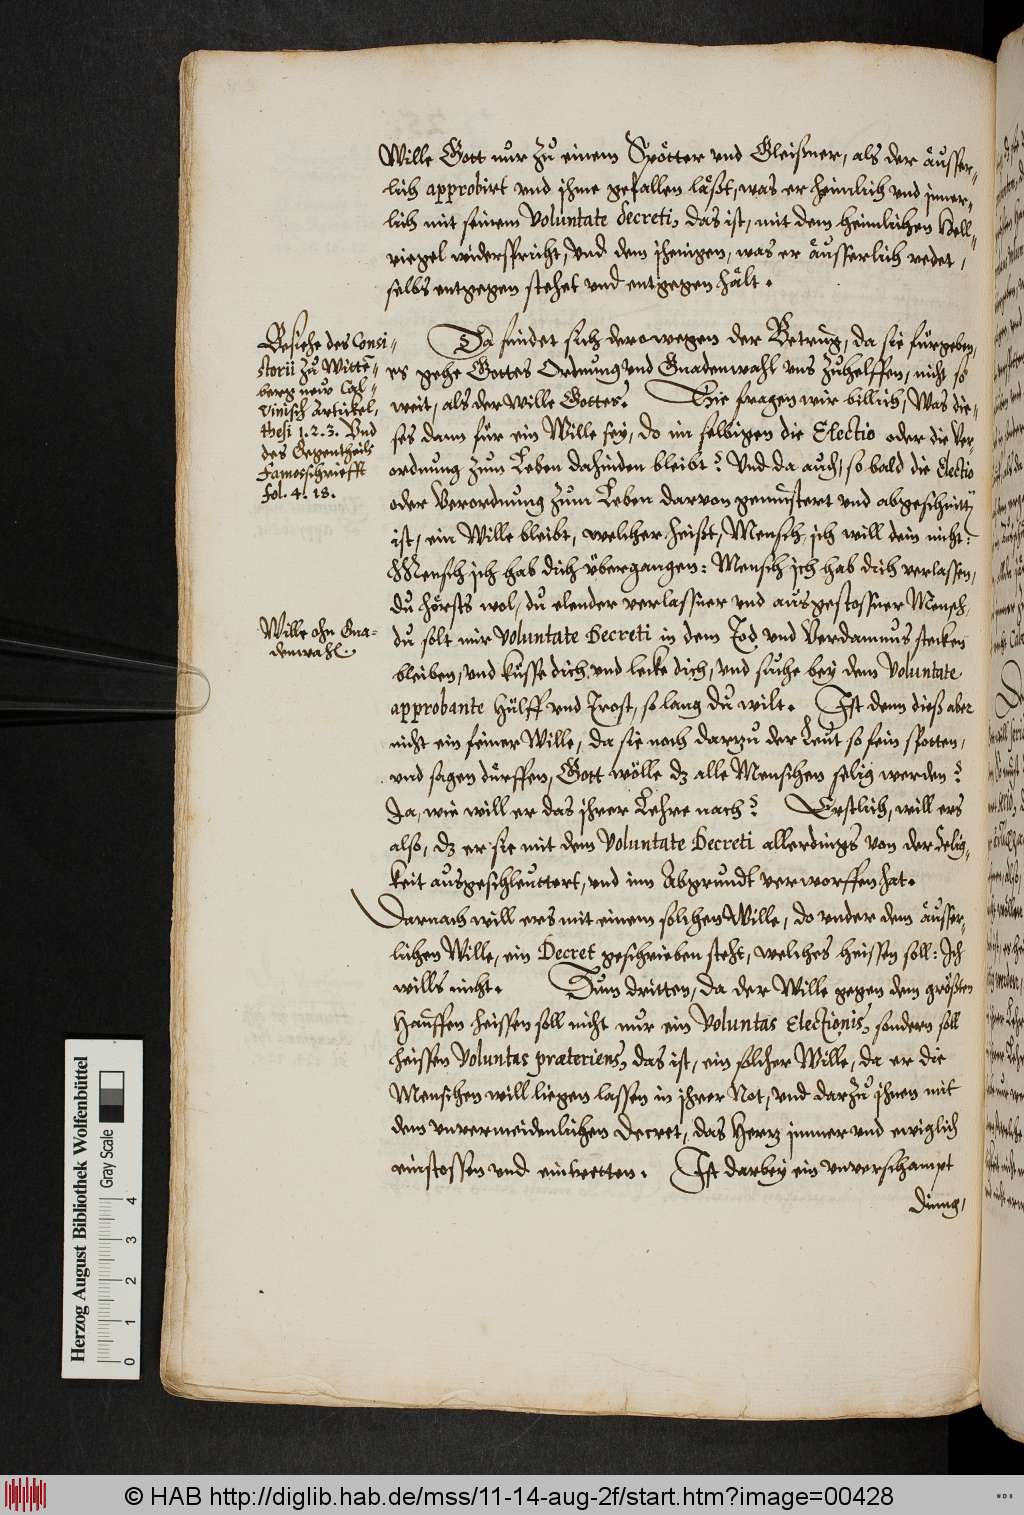 Wille Gott nur zu einem Spötter vnd Gleißner, als der äusser-
lich approbirt vnd ihme gefallen läßt, was er heimlich vnd inner-
lich mit seinem Voluntate decreti, das ist, mit dem heimlichen Hell-
riegel widerspricht, vnd dem jhenigen, was er äusserlich redet,
selbs entgegen stehet vnd entgegen hält.
Besiehe des Consi-
storii zu Witte-
berg neuw Cal-
vinisch Artickel,
thesi 1. 2. 3. Vnd
des Gegentheils
Famosschriefft
fol. 4. 18.
Da findet sich derowegen der Betrug, da sie fürgeben,
es gehe Gottes Ordnung vnd Gnadenwahl vns zuhelffen, nicht so
weit, als der Wille Gottes. Hie fragen wir billich, Was die-
ses dann für ein Wille sey, do im selbigen die Electio oder die Ver-
ordnung zum Leben dahinden bleibt? Vnd da auch, so bald die Electio
oder Verordnung zum Leben darvon gemustert vnd abgeschnitten
ist, ein Wille bleibt, welcher heißt, Mensch ich will dein nicht:
Mensch ich hab dich übergangen: Mensch ich hab dich verlassen,
du hörsts wol, du elender verlassner vnd ausgestossner Mensch,
Wille ohn Gna-
denwahl.
du solt mir Voluntate Decreti in dem Tod vnd Verdamnus stecken
bleiben, vnd küsse dich vnd lecke dich, vnd suche bey dem Voluntate
approbante Hülff vnd Trost, so lang du wilt. Ist denn dieß aber
nicht ein feiner Wille, da sie noch darzu der Leut so fein spotten,
vnd sagen dürffen, Gott wölle dz alle Menschen selig werden?
Ja, wie will er das ihrer Lehre nach? Erstlich, will ers
also, dz er sie mit dem Voluntate Decreti allerdings von der Selig-
keit ausgeschleuttert, vnd inn Abgrundt verworffen hat.
Darnach will ers mit einem solchen Wille, do vnder dem äusser-
lichen Wille, ein Decret geschrieben steht, welches heissen soll: Ich
wills nicht. Zum dritten, da der Wille gegen dem größten
Hauffen heissen soll nicht nur ein Voluntas Electionis, sondern soll
heissen Voluntas præteriens, das ist, ein solcher Wille, da er die
Menschen will liegen lassen in jhrer Not, vnd darzu ihnen mit
dem unvermeidenlichen Decret, das Hertz immer vnd ewiglich
einstossen vnd eintretten. Ist darbey ein vnverschampt
Dinng,
Herzog August Bibliothek Wolfenbüttel
Gray Scale
0 1 2 3 4
© HAB http://diglib.hab.de/mss/11-14-aug-2f/start.htm?image=00428